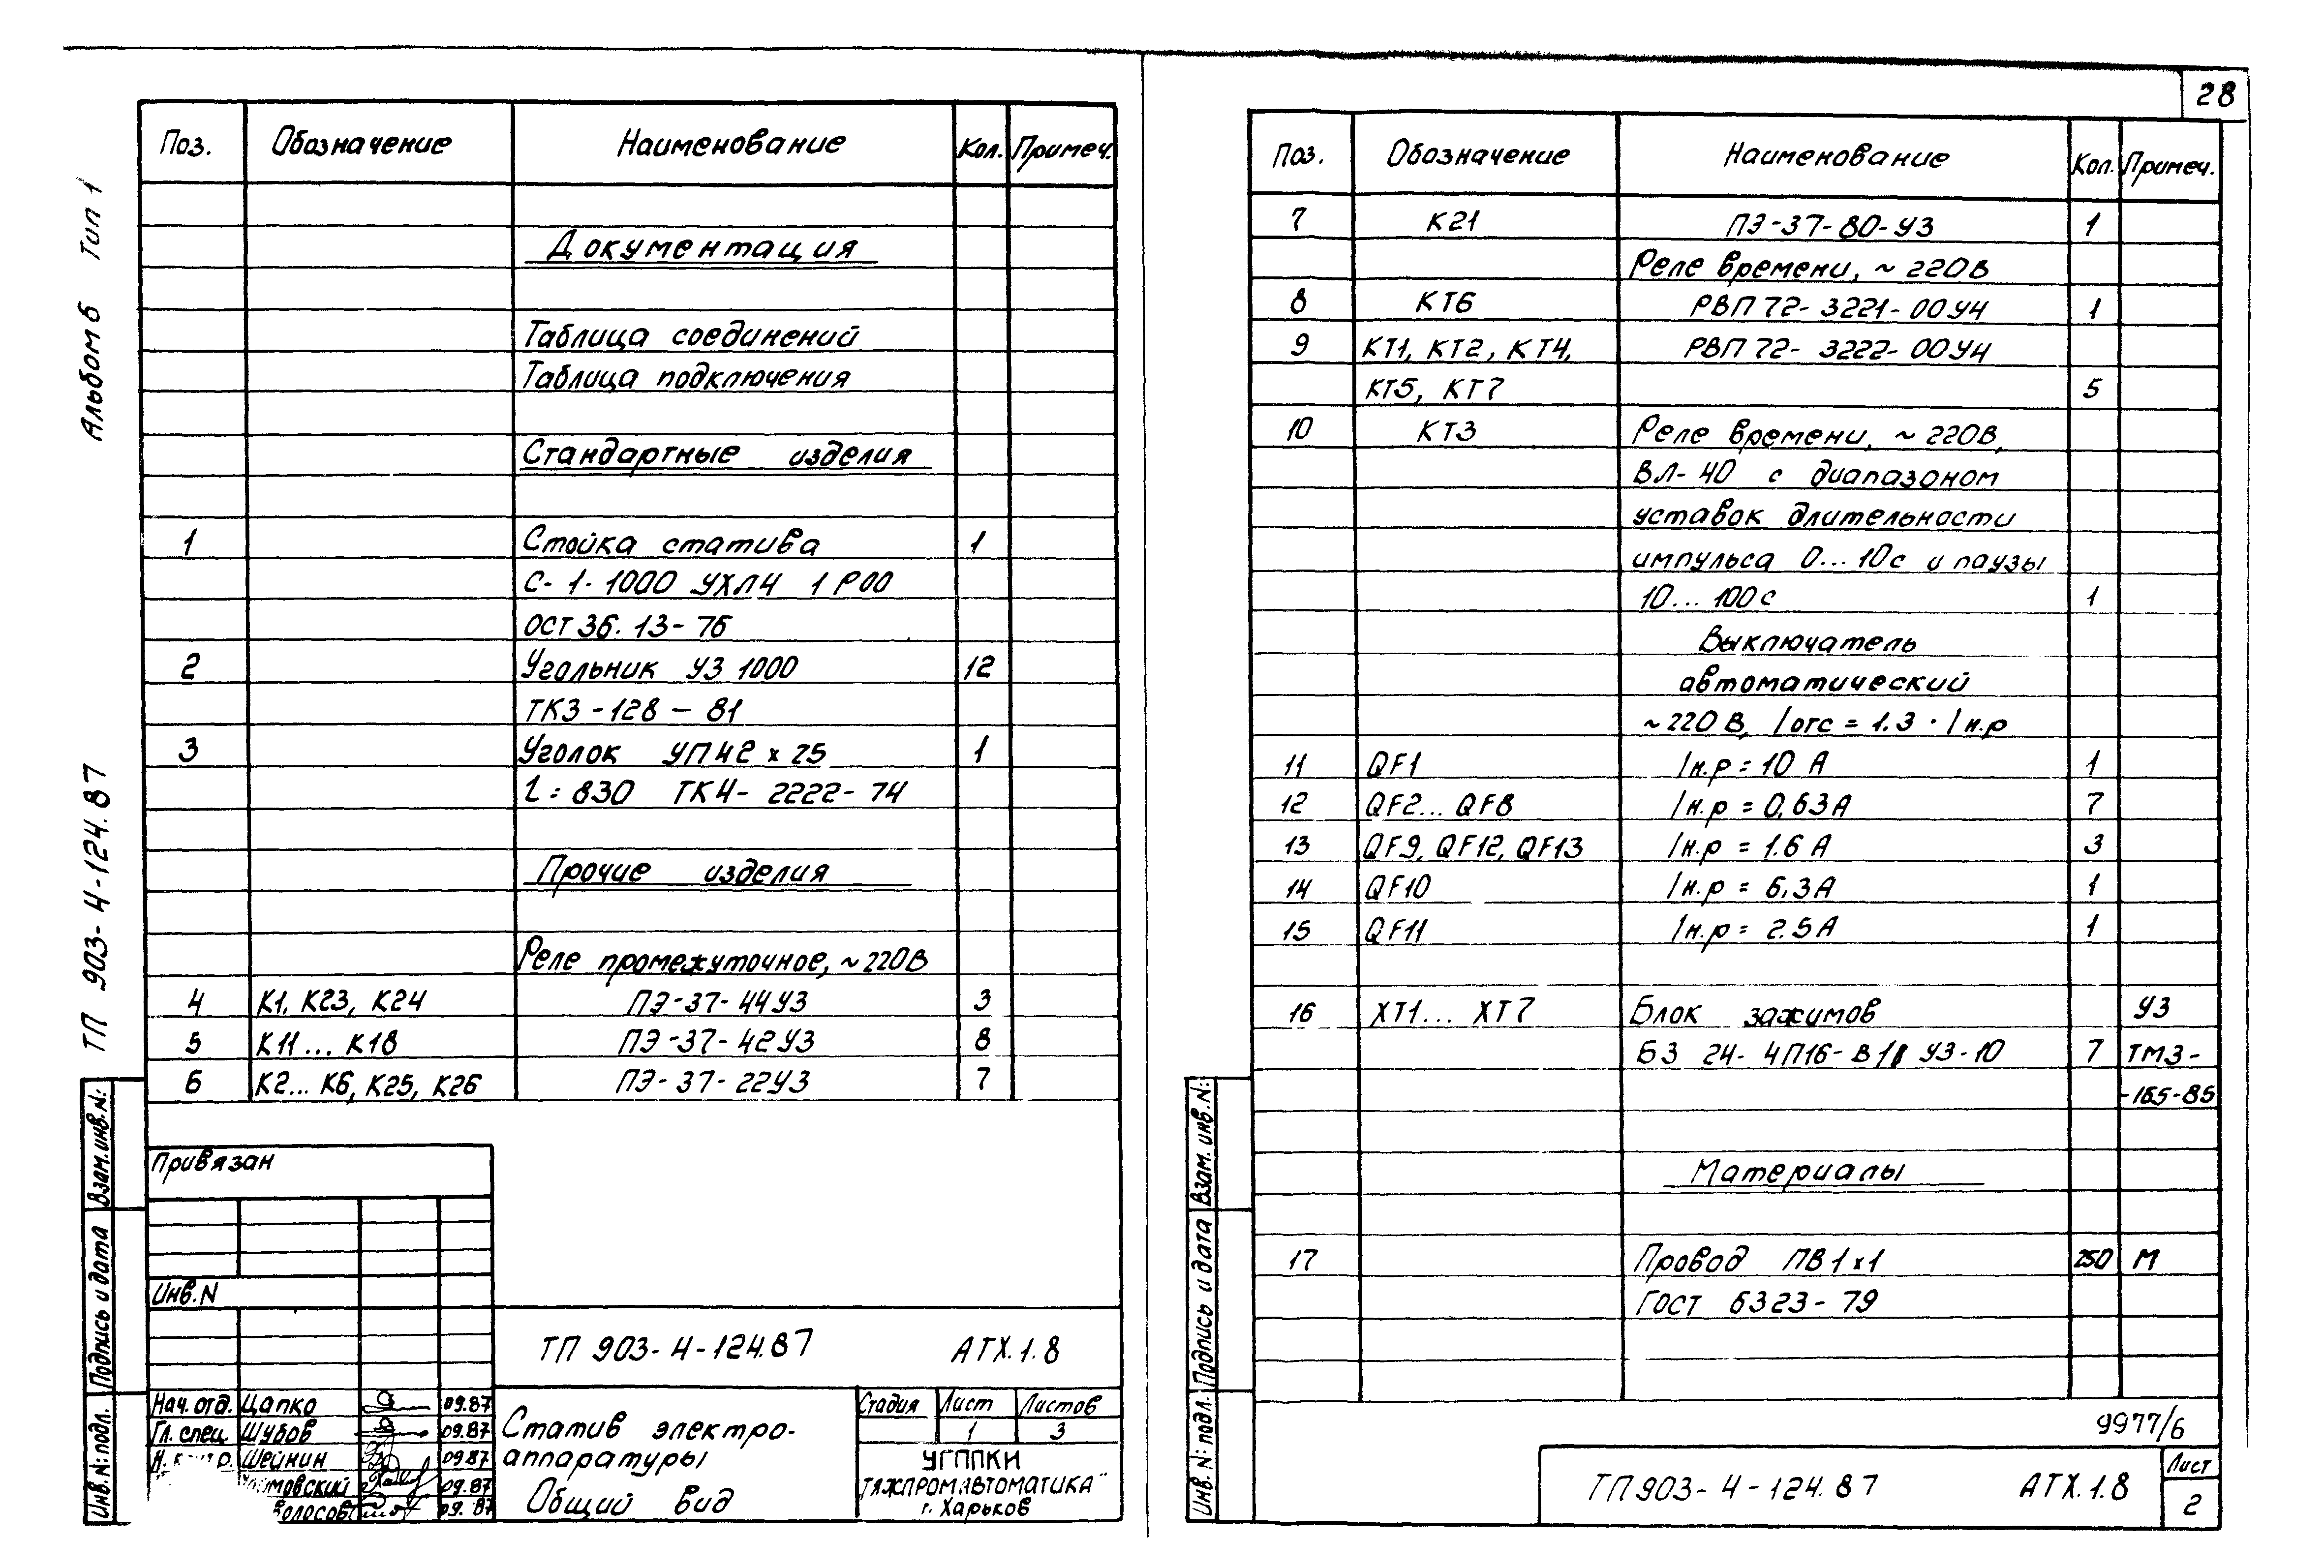 28
Альбом 6 Тип 1
ТП 903-4-124.87
Поз. Обозначение Наименование Кол. Примеч.
Документация
Таблица соединений
Таблица подключения
Стандартные изделия
1 Стойка статива 1
С-1-1000 УХЛ4 1Р00
ОСТ 36.13-76
2 Угольник УЗ 1000 12
ТК3-128-81
3 Уголок УП 42 х 25 1
l=830 ТК4-2222-74
Прочие изделия
Реле промежуточное, ~220В
4 К1, К23, К24 ПЭ-37-44У3 3
5 К11... К18 ПЭ-37-42У3 8
6 К2... К6, К25, К26 ПЭ-37-22У3 7
Привязан
Инв. N
ТП 903-4-124.87 АТХ.1.8
Нач. отд. Цапко 09.87
Гл. спец Шубов 09.87
Шейнин 09.87
09.87
09.87
Статив электро-
аппаратуры
Общий вид
Стадия Лист Листов
1 3
УГППКИ
"ТЯЖПРОМАВТОМАТИКА"
г. Харьков
Взам. инв. N:
Подпись и дата
Инв. N: подл.
Поз. Обозначение Наименование Кол. Примеч.
7 К21 ПЭ-37-80-У3 1
Реле времени, ~220В
8 КТ6 РВП 72-3221-00У4 1
9 КТ1, КТ2, КТ4, РВП 72-3222-00У4
КТ5, КТ7 5
10 КТ3 Реле времени, ~220В,
ВЛ-40 с диапазоном
уставок длительности
импульса 0...10с и паузы
10...100с 1
Выключатель
автоматический
~220В, Iотс = 1.3 · Iн.р
11 QF1 Iн.р = 10 А 1
12 QF2... QF8 Iн.р = 0,63А 7
13 QF9, QF12, QF13 Iн.р = 1.6 А 3
14 QF10 Iн.р = 6,3А 1
15 QF11 Iн.р = 2.5А 1
16 ХТ1... ХТ7 Блок зажимов У3
БЗ 24-4П16-В/В У3-10 7 ТМ3-
-165-85
Материалы
17 Провод ПВ1х1 250 м
ГОСТ 6323-79
Взам. инв. N:
Подпись и дата
Инв. N: подл.
9977/6
ТП 903-4-124.87 АТХ.1.8
Лист
2